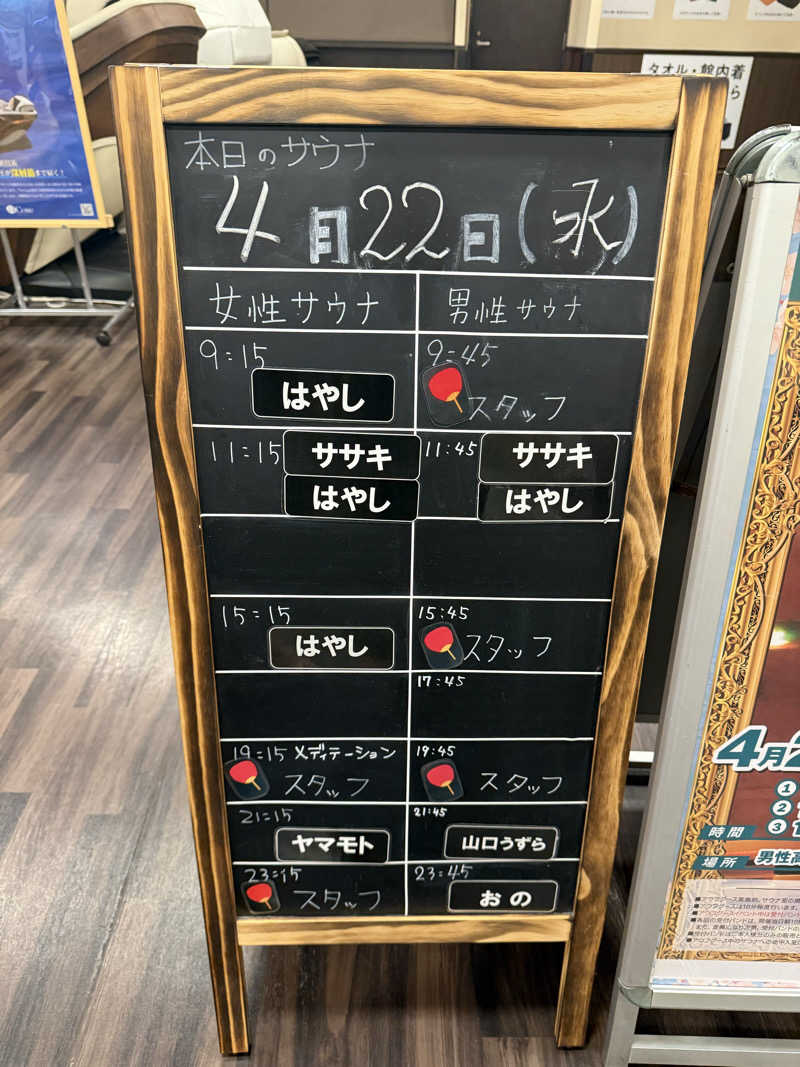 タオル・館内着
本日のサウナ
4月22日(水)
女性サウナ 男性サウナ
9:15 はやし 9:45 スタッフ
11:15 ササキ はやし 11:45 ササキ はやし
15:15 はやし 15:45 スタッフ
17:45
19:15 メディテーション スタッフ 19:45 スタッフ
21:15 ヤマモト 21:45 山口うずら
23:15 スタッフ 23:45 おの
4月2
①
②
③
時間
場所 男性高